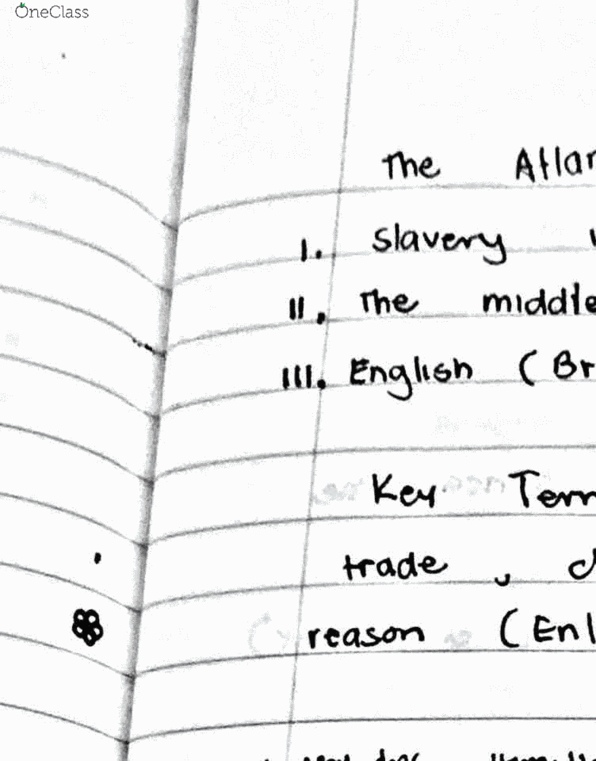 OneClass
The Atlan
I. Slavery
II. The middle
III. English (Br
Key Term
trade, d
reason (Enl